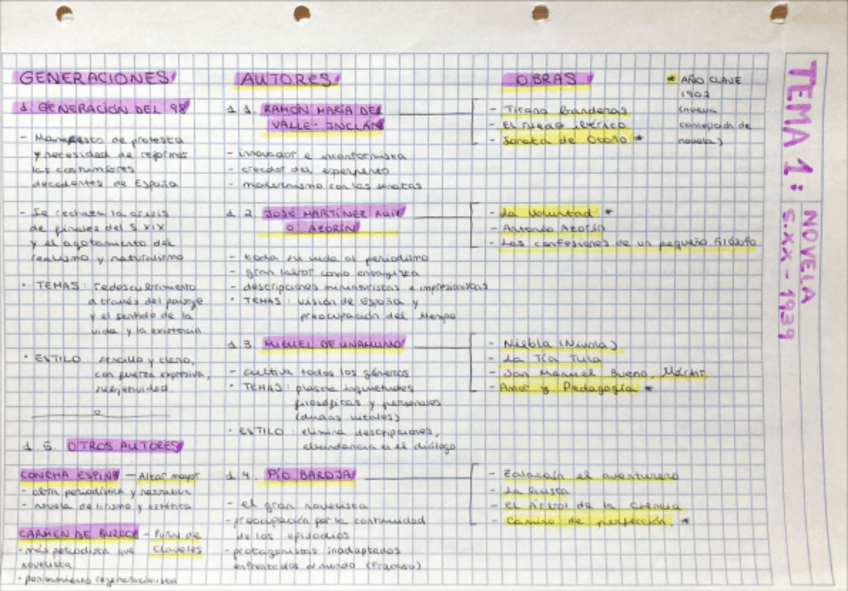 TEMA 1: NOVELA
S.XX - 1939
GENERACIONES
1. GENERACIÓN DEL 98
- Manifiesto de protesta
y necesidad de reformar
las costumbres
decadentes de España
- Se rechaza la crisis
de finales del S. XIX
y el agotamiento del
realismo y naturalismo
· TEMAS: redescubrimiento
a través del paisaje
y el sentido de la
vida y la existencia
· ESTILO: sencillo y claro,
con fuerza expresiva,
subjetividad
1.5. OTROS AUTORES
CONCHA ESPINA — Altar mayor
- obra periodística y narrativa
- novela de lirismo y estética
CARMEN DE BURGOS - Puñal de
claveles
- más periodista que
novelista
- pensamiento regeneracionista
AUTORES
1.1. RAMÓN MARÍA DEL
VALLE-INCLÁN
- innovador e inconformista
- creador del esperpento
- modernismo con las sonatas
1.2. JOSÉ MARTÍNEZ RUIZ
O AZORÍN
- toda su vida al periodismo
- gran labor como ensayista
- descripciones miniaturistas e impresionistas
· TEMAS: visión de España y
preocupación del tiempo
1.3. MIGUEL DE UNAMUNO
- cultiva todos los géneros
· TEMAS: plasma inquietudes
filosóficas y personales
(dudas vitales)
· ESTILO: elimina descripciones,
abundancia en el diálogo
1.4. PÍO BAROJA
- el gran novelista
- preocupación por la continuidad
de los episodios
- protagonistas inadaptados
enfrentados al mundo (fracaso)
OBRAS
- Tirano Banderas
- El ruedo ibérico
- Sonata de Otoño *
- La Voluntad *
- Antonio Azorín
- Las confesiones de un pequeño filósofo
- Niebla (Nivola)
- La Tía Tula
- San Manuel Bueno, Mártir
- Amor y Pedagogía *
- Zalacaín el aventurero
- La busca
- El Árbol de la Ciencia
- Camino de perfección. *
* AÑO CLAVE
1902
(nueva
concepción de
novela)